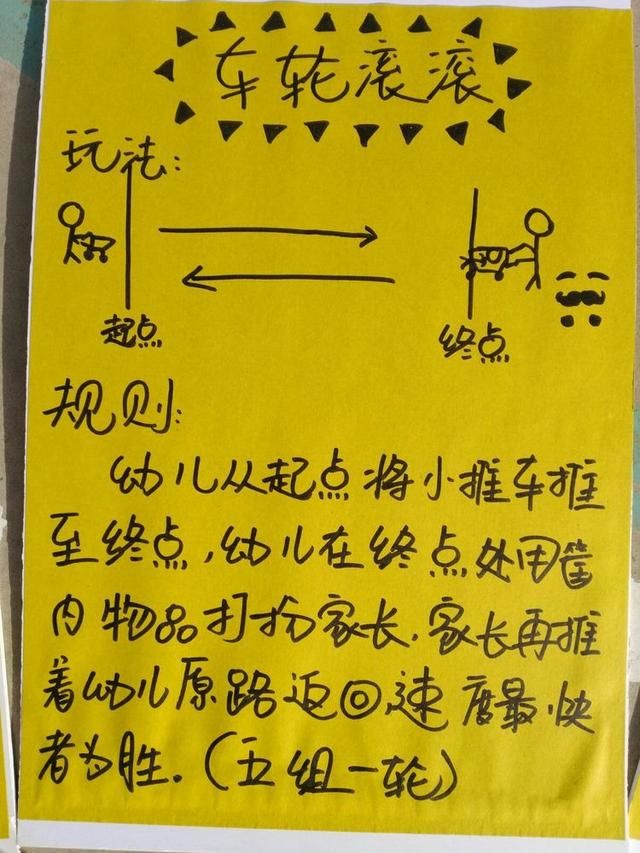 车轮滚滚
玩法:
起点
终点
规则:
幼儿从起点将小推车推
至终点,幼儿在终点处用筐
内物品打扮家长.家长再推
着幼儿原路返回,速度最快
者为胜.(五组一轮)